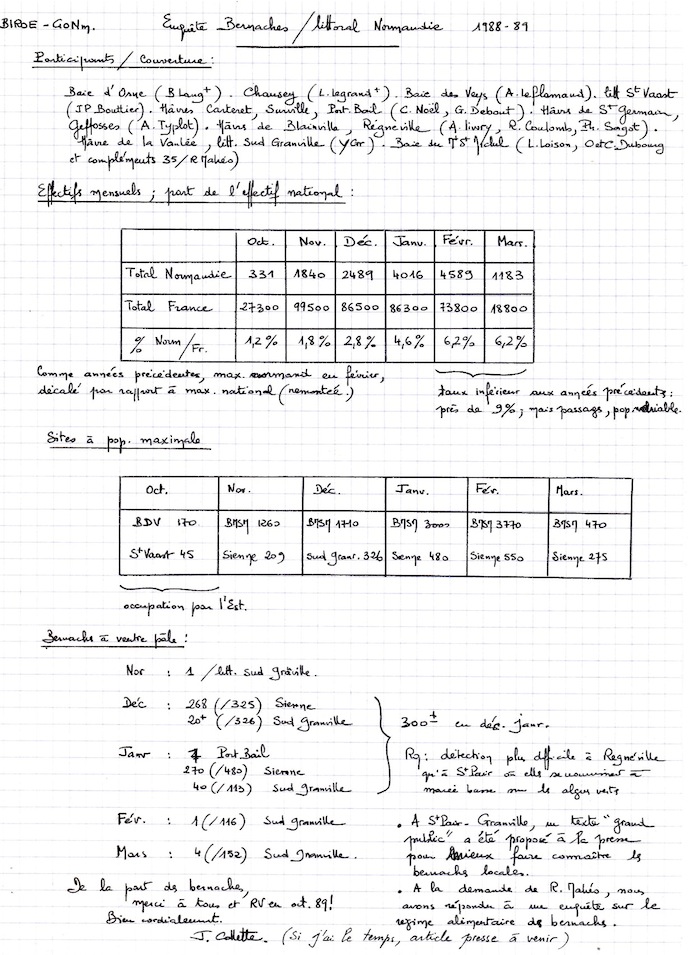 BIROE - GONm. Enquête Bernaches / littoral Normandie 1988-89
Participants / Couverture :
Baie d'Orne (B Lang+). Chausey (L. legrand+). Baie des Veys (A. leflamand). litt St Vaast
(JP Bouttier). Hâvres Carteret, Surville, Port Bail (C. Noël, G. Debout). Hâvres de St Germain,
Geffosses (A. Typlot). Hâvres de Blainville, Régneville (A. livory, R. Coulomb, Ph. Sagot).
Hâvre de la Vanlée, litt. Sud Granville (Y Gr). Baie du Mt St Michel (L. Loison, O et C. Dubourg
et compléments 35 / R Mahéo)
Effectifs mensuels ; part de l'effectif national :
Oct. Nov. Déc. Janv. Févr. Mars.
Total Normandie 331 1840 2489 4016 4589 1183
Total France 27300 99500 86500 86300 73800 18800
% Norm / Fr. 1,2% 1,8% 2,8% 4,6% 6,2% 6,2%
Comme années précédentes, max. normand en février,
décalé par rapport à max. national (remontée.)
taux inférieur aux années précédentes :
près de 9% ; mais passage, pop. variable.
Sites à pop. maximale
Oct. Nov. Déc. Janv. Fév. Mars.
BDV 170 BMSM 1260 BMSM 1710 BMSM 3000 BMSM 3770 BMSM 470
St Vaast 45 Sienne 209 Sud Granv. 326 Sienne 480 Sienne 550 Sienne 275
occupation par l'Est.
Bernaches à ventre pâle :
Nov : 1 / litt. Sud Granville.
Déc : 268 (/325) Sienne
20+ (/326) Sud Granville
Janv : 1 Port Bail
270 (/480) Sienne
40 (/113) Sud Granville
Fév. : 1 (/116) Sud Granville
Mars : 4 (/152) Sud Granville.
300 ± en déc. janv.
Rq : détection plus difficile à Regnéville
qu'à St Pair où elles se nourrissent à
marée basse sur les algues vertes
. A St Pair - Granville, un texte "grand
public" a été proposé à la presse
pour mieux faire connaître les
bernaches locales.
. A la demande de R. Mahéo, nous
avons répondu à une enquête sur le
régime alimentaire des bernaches.
De la part des bernaches,
merci à tous et RV en oct. 89 !
Bien cordialement.
J. Collette. (Si j'ai le temps, article presse à venir)